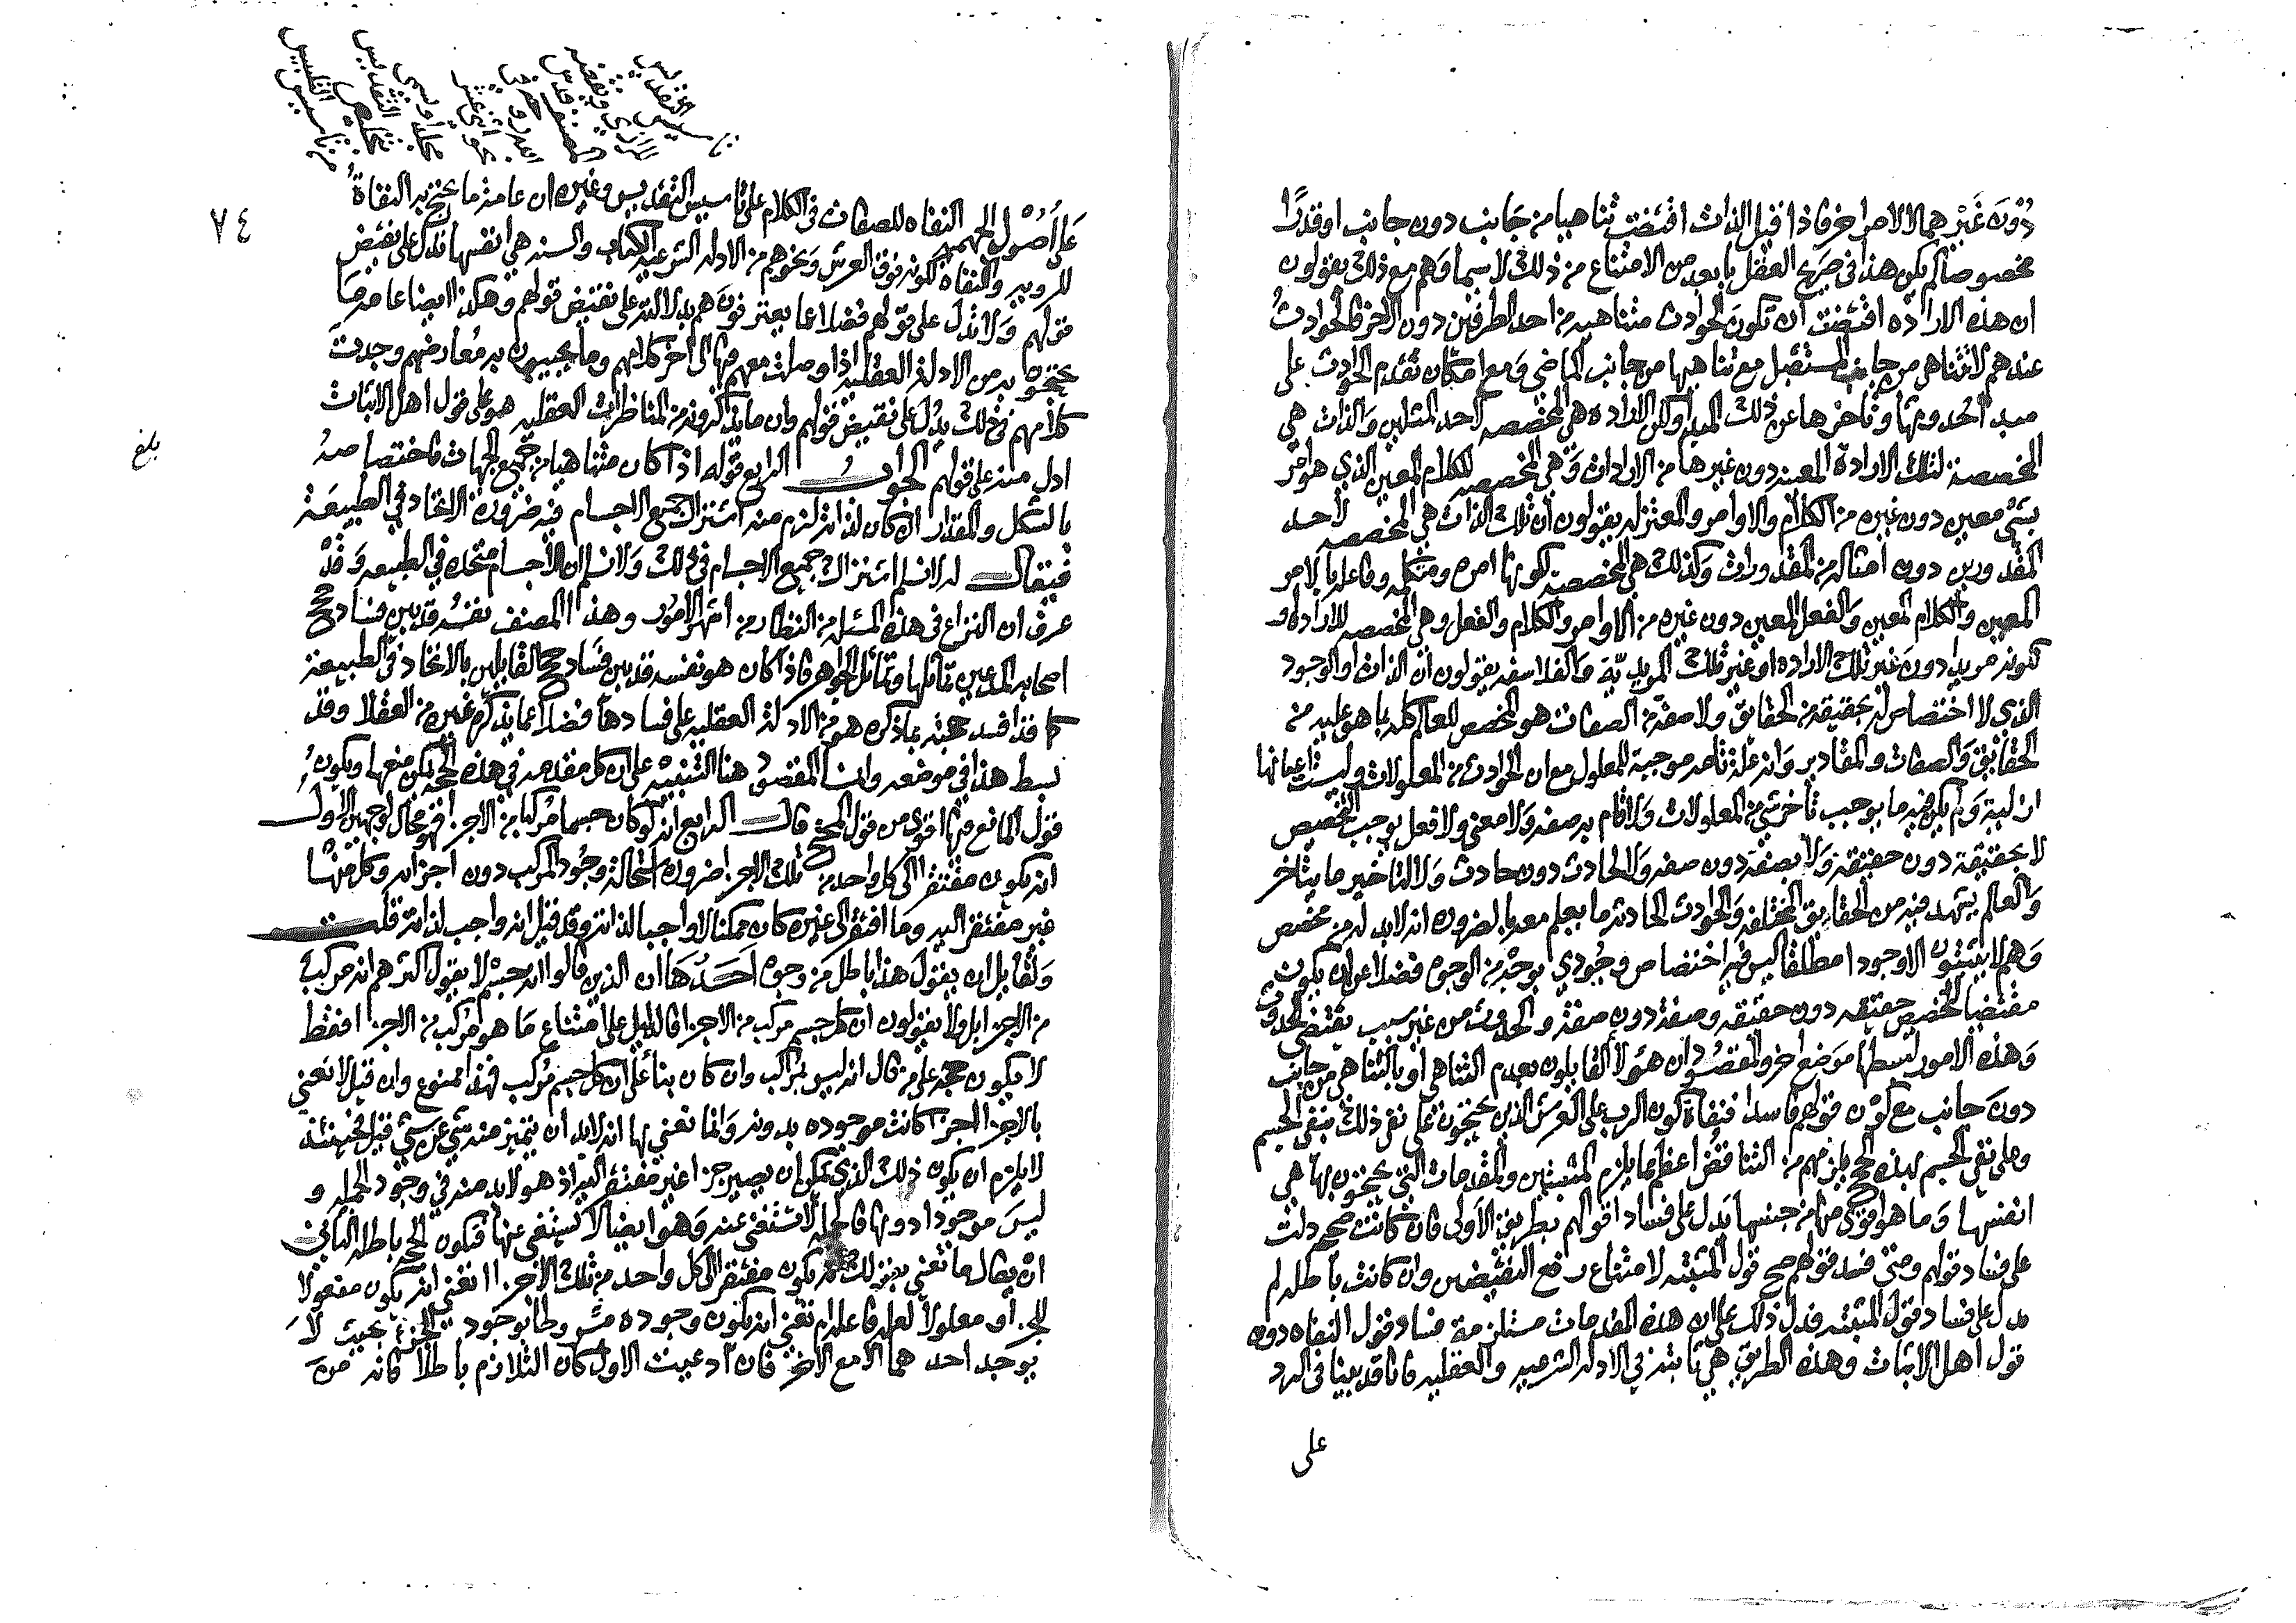 دُوْنَ غَيْرهما الا لامر اخر فاذا قيل الذات اقتضت تناهيا من جانب دون جانب او قدرًا
مخصوصا لم يكن هذا في صريح العقل بابعد من الامتناع من ذلك لا سيما وهم مع ذلك يقولون
ان هذه الارادة اقتضت ان تكون الحوادث متناهيه من احد الطرفين دون الاخر فالحوادث
عندهم لا تتناهى من جانب المستقبل مع تناهيها من جانب الماضي ومع امكان تقدم الحوادث على
مبدا حدوثها وتاخرها عن ذلك المبدا ولكن الاراده هي المخصصه لاحد المثلين والذات هي
المخصصة لتلك الارادة المعينه دون غيرها من الارادات وهي المخصصه للكلام المعين الذي هو امر
بشي معين دون غيره من الكلام والاوامر والمعتزله يقولون ان تلك الذات هي المخصصه لاحد
المقدورين دون امثاله من المقدورات وكذلك هي المخصصة لكونها امره ومتكلمه وفاعله بالامر
المعين والكلام المعين والفعل المعين دون غيره من الاوامر والكلام والفعل وهي المخصصه للاراده او
كونه مريدا دون غير تلك الاراده او غير تلك المريدية والفلاسفه يقولون ان الذات او الوجود
الذي لا اختصاص له بحقيقه من الحقايق ولا صفة من الصفات هو المخصص للعالم كله بما هو عليه من
الحقايق والصفات والمقادير وانه علة تامه موجبة للمعلول مع ان الحوادث من المعلولات وليست اعيانها
ازلية ولم يكن فيه ما يوجب تاخر شي من المعلولات ولا قام به صفه ولا معنى ولا فعل يوجب التخصيص
لا بحقيقة دون حقيقه ولا بصفة دون صفه ولا لحادث دون حادث ولا لتاخير ما يتاخر
والعالم يشهد فيه من الحقايق المختلفه والحوادث الحادثه ما يعلم معه بالضروره انه لابد له من مخصص
وهم لا يثبتون الا وجودا مطلقا ليس فيه اختصاص وجودي بوجه من الوجوه فضلا عن ان يكون
مقتضيا لتخصيص حقيقه دون حقيقه وصفة دون صفة والحدوث من غير سبب يقتضي الحدوث
وهذه الامور لبسطها موضع اخر والمقصود ان هؤلا القايلون بعدم التناهي او بالتناهي من جانب
دون جانب مع كون قولهم فاسدا فنفاة كون الرب على العرش الذين يحتجون على نفي ذلك بنفي الجسم
وعلى نفي الجسم بهذه الحجج يلزمهم من التناقض اعظم ما يلزم المثبتين والمقدمات التي يحتجون بها هي
انفسها وما هو اقوى منها من جنسها يدل على فساد اقوالهم بطريق الاولى فان كانت صحيحه دلت
على فساد قولهم ومتى فسد قولهم صح قول المثبته لامتناع رفع النقيضين وان كانت باطله لم
يدل على فساد قول المثبته فدل ذلك على ان هذه المقدمات مستلزمة فساد قول النفاه دون
قول اهل الاثبات وهذه الطريق هي ثابته في الادله الشرعيه والعقليه فانا قد بينا في الرد
على
٧٤
على اُصُول الجهميه النفاه للصفات في الكلام على تاسيس التقديس وغيره ان عامة ما يحتج به النفاةُ
للرويه والنفاه لكونه فوق العرش ونحوهم من الادله الشرعيه الكتاب والسنه هي انفسها تدل على نقيض
قولهم ولا تدل على قولهم فضلا عما يعترفون هم بدلالته على نقيض قولهم وهكذا ايضا عامة ما
يحتجون به من الادلة العقليه اذا وصلت معهم فيها الى اخر كلامهم وما يجيبون به معارضهم وجدت
كلامهم في ذلك يدل على نقيض قولهم وان ما يذكرونه من المناظرات العقليه هو على قول اهل الاثبات
ادل منه على قولهم الرابع قوله اذا كان متناهيا من جميع الجهات فاختصاصه
بالشكل والمقدار ان كان لذاته لزم منه اشتراك جميع الاجسام فيه ضرورة الاتحاد في الطبيعة
فيقال له لا نسلم اشتراك جميع الاجسام في ذلك ولا نسلم ان الاجسام متحده في الطبيعه وقد
عرف ان النزاع في هذه المسئله من النظار من اشهر الامور وهذا المصنف نفسه قد بين فساد حجج
اصحابه المدعين تماثلها وتماثل الجواهر فاذا كان هو نفسه قد بين فساد حجج القايلين بالاتحاد في الطبيعة
كما قد افسد حجته بما ذكره هو من الادلة العقليه على فسادها فضلا عما يذكره غيره من العقلا وقد
بسط هذا في موضعه وانما المقصود هنا التنبيه على ان كل مقدمه في هذه الحجج يمكن منعها ويكون
قول المانع فيها اقوى من قول المحتج قال الرابع انه لو كان جسما لكان مركبا من الاجزا فهو محال لوجهين الاول
انه يكون مفتقرا الى كل واحد من تلك الاجزا ضرورة استحالة وجود المركب دون اجزائه وكل منها
غير مفتقر اليه وما افتقر الى غيره كان ممكنا لا واجبا لذاته وقد قيل انه واجب لذاته قلت
ولقايل ان يقول هذا باطل من وجوه احدها ان الذين قالوا انه جسم لا يقول اكثرهم انه مركب
من الاجزا بل ولا يقولون ان كل جسم مركب من الاجزا فالدليل على امتناع ما هو مركب من الاجزا فقط
لا يكون حجة على من قال انه ليس بمركب وان كان بناء على ان كل جسم مركب فهذا ممنوع وان قيل لا نعني
بالاجزا اجزا كانت موجوده بدونه وانما نعني بها انه لابد ان يتميز منه شي عن شي قيل فحينئذ
لا يلزم ان يكون ذلك الذي يمكن ان يصير جزا غير مفتقر اليه اذ هو لابد منه في وجود الجمله و
ليس موجودا دونها فالجمله لا تستغني عنه وهو ايضا لا يستغني عنها فتكون الحجه باطله الثاني
ان يقال ما تعني بقولك انه يكون مفتقرا الى كل واحد من تلك الاجزا اتعني انه يكون مفعولا
للجزء او معلولا لعله فاعله ام تعني انه يكون وجوده مشروطا بوجود الجزء بحيث لا
يوجد احدهما الا مع الاخر فان ادعيت الاول كان التلازم باطلا فانه من
بلغ